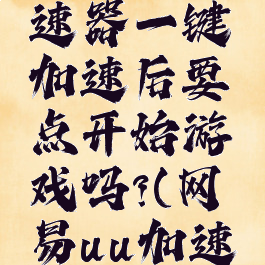 速器一键
加速后要
点开始游
戏吗?(网
易uu加速